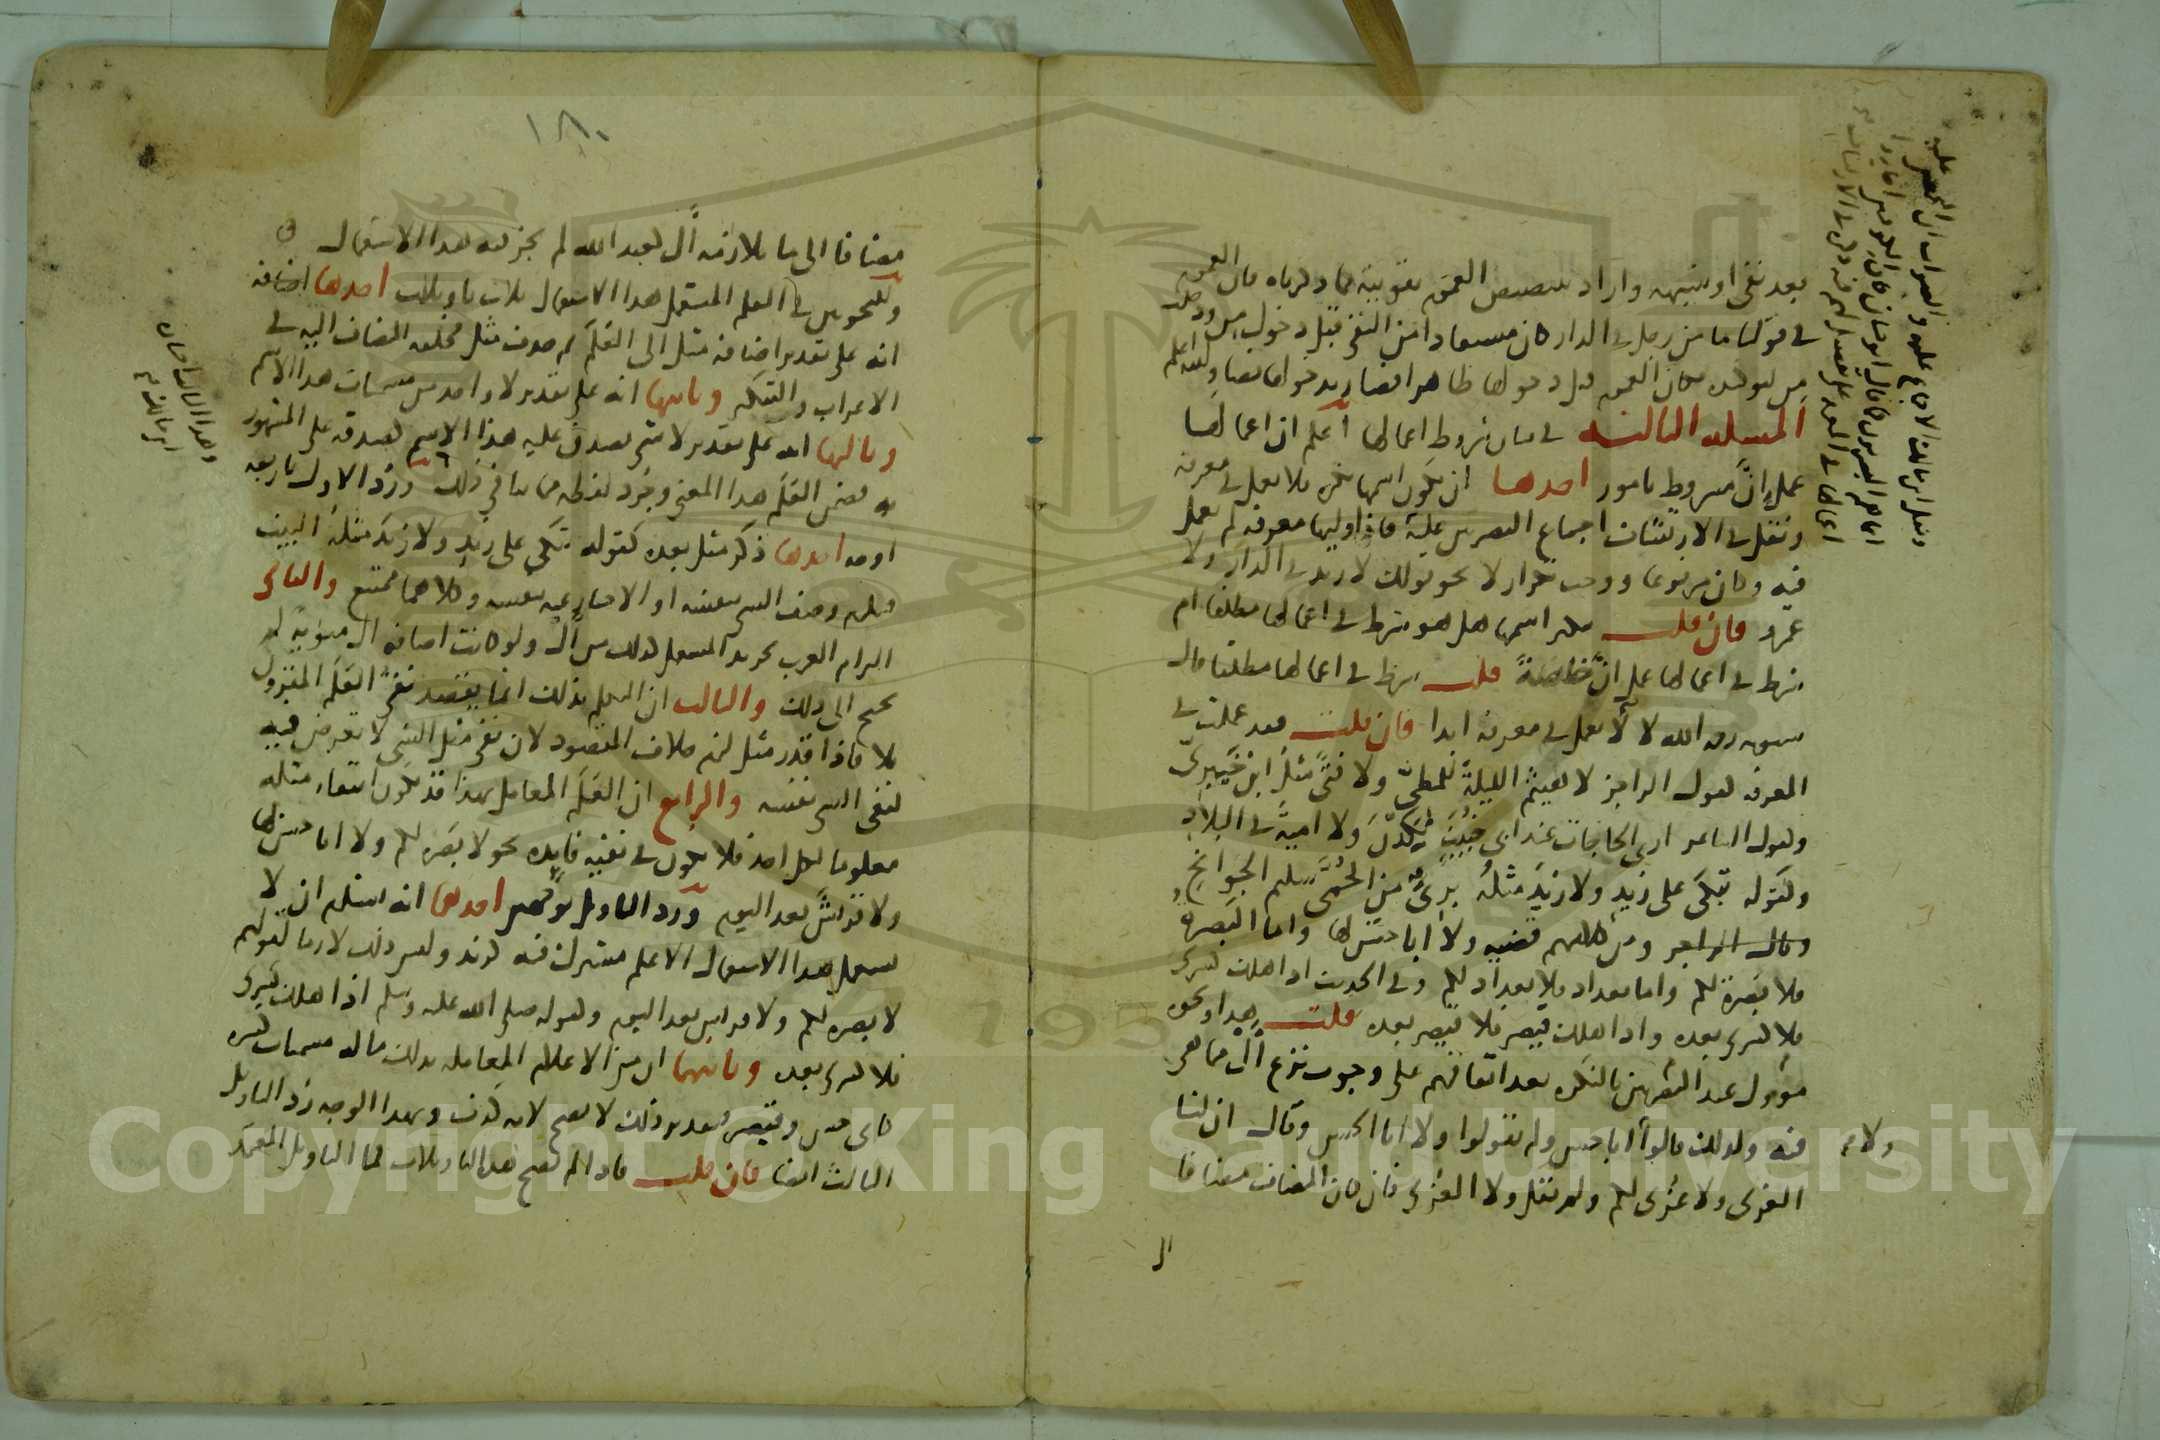 بعد نفي او شبهه واراد تنصيص العموم بقوبية ما ذكرناه فان العموم
في قولنا ما من رجل في الدار كان مستفادا من النفي قبل دخول من ودخلت
من لتوكيده فكان العموم قبل دخولها ظاهرا فصار بدخولها نصا والله اعلم
المسلة الثالثه في بيان شروط اعمالها اعلم ان اعمالها
عمل ان مشروط بامور احدها ان يكون اسمها نكره فلا تعمل في معرفه
ونقل في الارتشاف اجماع البصريين عليه فاذا وليها معرفه لم تعمل
فيه وكان مرفوعا ووجب تكرار لا نحو قولك لا زيد في الدار ولا
عمرو فان قلت تنكير اسمها هل هو شرط في اعمالها مطلقا ام
شرط في اعمالها عمل ان خاصة قلت شرط في اعمالها مطلقا قال
سيبويه رحمه الله لا لا تعمل في معرفه ابدا فان قلت فقد عملت في
المعرفه كقول الراجز لا هيثم الليلة للمطي ولا فتى مثل ابن خيبري
ولقول الشاعر ارى الحاجات عند ابي خبيب نكدن ولا امية في البلاد
وكقوله تبكي على زيد ولا زيد مثله بريء من الحمى سليم الجوانح
وقال الراجز ومن كلامهم قضيه ولا ابا حسن لها واما البصرة
فلا بصرة لكم واما بغداد فلا بغداد لكم وفي الحديث اذا هلك كسرى
فلا كسرى بعده واذا هلك قيصر فلا قيصر بعده قلت هذا ونحوه
مؤول عند البصريين بالنكره بعد اتفاقهم على وجوب نزع ال مما هي
فيه ولذلك قالوا ابا حسن ولم يقولوا ولا ابا الحسن وقال ان لنا
العزى ولا عزى لكم ولم يقل ولا العزى فان كان المضاف مضافا
ال
ولا
١٨٠
مضافا الى ما يلازمه ال كعبد الله لم يجز فيه هذا الاستعمال
وللنحويين في العلم المستعمل هذا الاستعمال ثلاث تاويلات احدها اضافه
انه على تقدير اضافة مثل الى العلم ثم حذف مثل فخلفه المضاف اليه في
الاعراب والتنكير وثانيها انه على تقدير لا واحد من مسميات هذا الاسم
وثالثها انه على تقدير لا شي يصدق عليه هذا الاسم لصدقه على المشهور
به فضمن العلم هذا المعنى وجرد لفظه مما ينافي ذلك ورد الاول باربعه
اوجه احدها ذكر مثل بعده كقوله تبكي على زيد ولا زيد مثله البيت
فيلزم وصف الشي بنفسه او الاخبار عنه بنفسه وكلاهما ممتنع والثاني
التزام العرب تجريد المستعمل كذلك من ال ولو كانت اضافة ال منوية لم
يحتج الى ذلك والثالث ان المتكلم بذلك انما يقصد نفي العلم المقرون
بلا فاذا قدر مثل لزم خلاف المقصود لان نفي مثل الشي لا تعرض فيه
لنفي الشي نفسه والرابع ان العلم المعامل بهذا قد يكون انتفاء مثله
معلوما لكل احد فلا يكون في نفيه فايده نحو لا بصره لكم ولا ابا حسن لها
ولا قريش بعد اليوم ورد التاويل بوجهين احدهما انه يستلزم ان لا
يستعمل هذا الاستعمال الا علم مشترك فيه كزيد وليس ذلك لازما لقولهم
لا بصره لكم ولا قريش بعد اليوم ولقوله صلى الله عليه وسلم اذا هلك كسرى
فلا كسرى بعده وثانيهما ان من الاعلام المعامله بذلك ما له مسميات كثيره
كابي حسن وقيصر فتقدير ذلك لا يصح لانه كذب وبهذا الوجه رد التاويل
الثالث ايضا فان قلت فاذا لم تصح هذه التاويلات فما التاويل المعتمد
Copyright © King Saud University
195